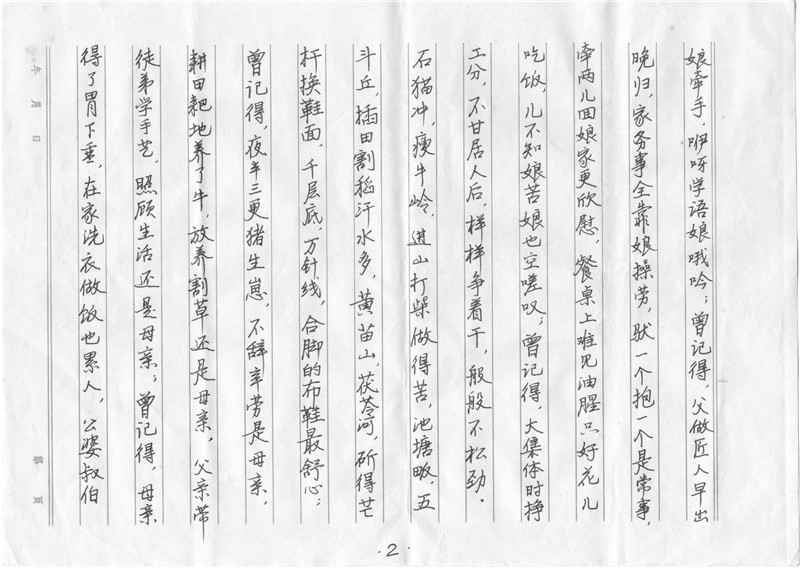 娘牵手，咿呀学语娘哦吟；曾记得，父做匠人早出
晚归，家务事全靠娘操劳，驮一个抱一个是常事，
牵两儿回娘家更欣慰，餐桌上难见油腥只好花儿
吃饭，儿不知娘苦娘也空嗟叹；曾记得，大集体时挣
工分，不甘居人后，样样争着干，般般不松劲．
石猫冲，瘦牛岭，进山打柴做得苦，池塘畈，五
斗丘，插田割稻汗水多，黄苗山，茯苓河，斫得芒
杆换鞋面，千层底，万针线，合脚的布鞋最舒心；
曾记得，夜半三更猪生崽，不辞辛劳是母亲，
耕田耙地养了牛，放养割草还是母亲，父亲带
徒弟学手艺，照顾生活还是母亲；曾记得，母亲
得了胃下垂，在家洗衣做饭也累人，公婆叔伯
年 月 日
第 页
·2·